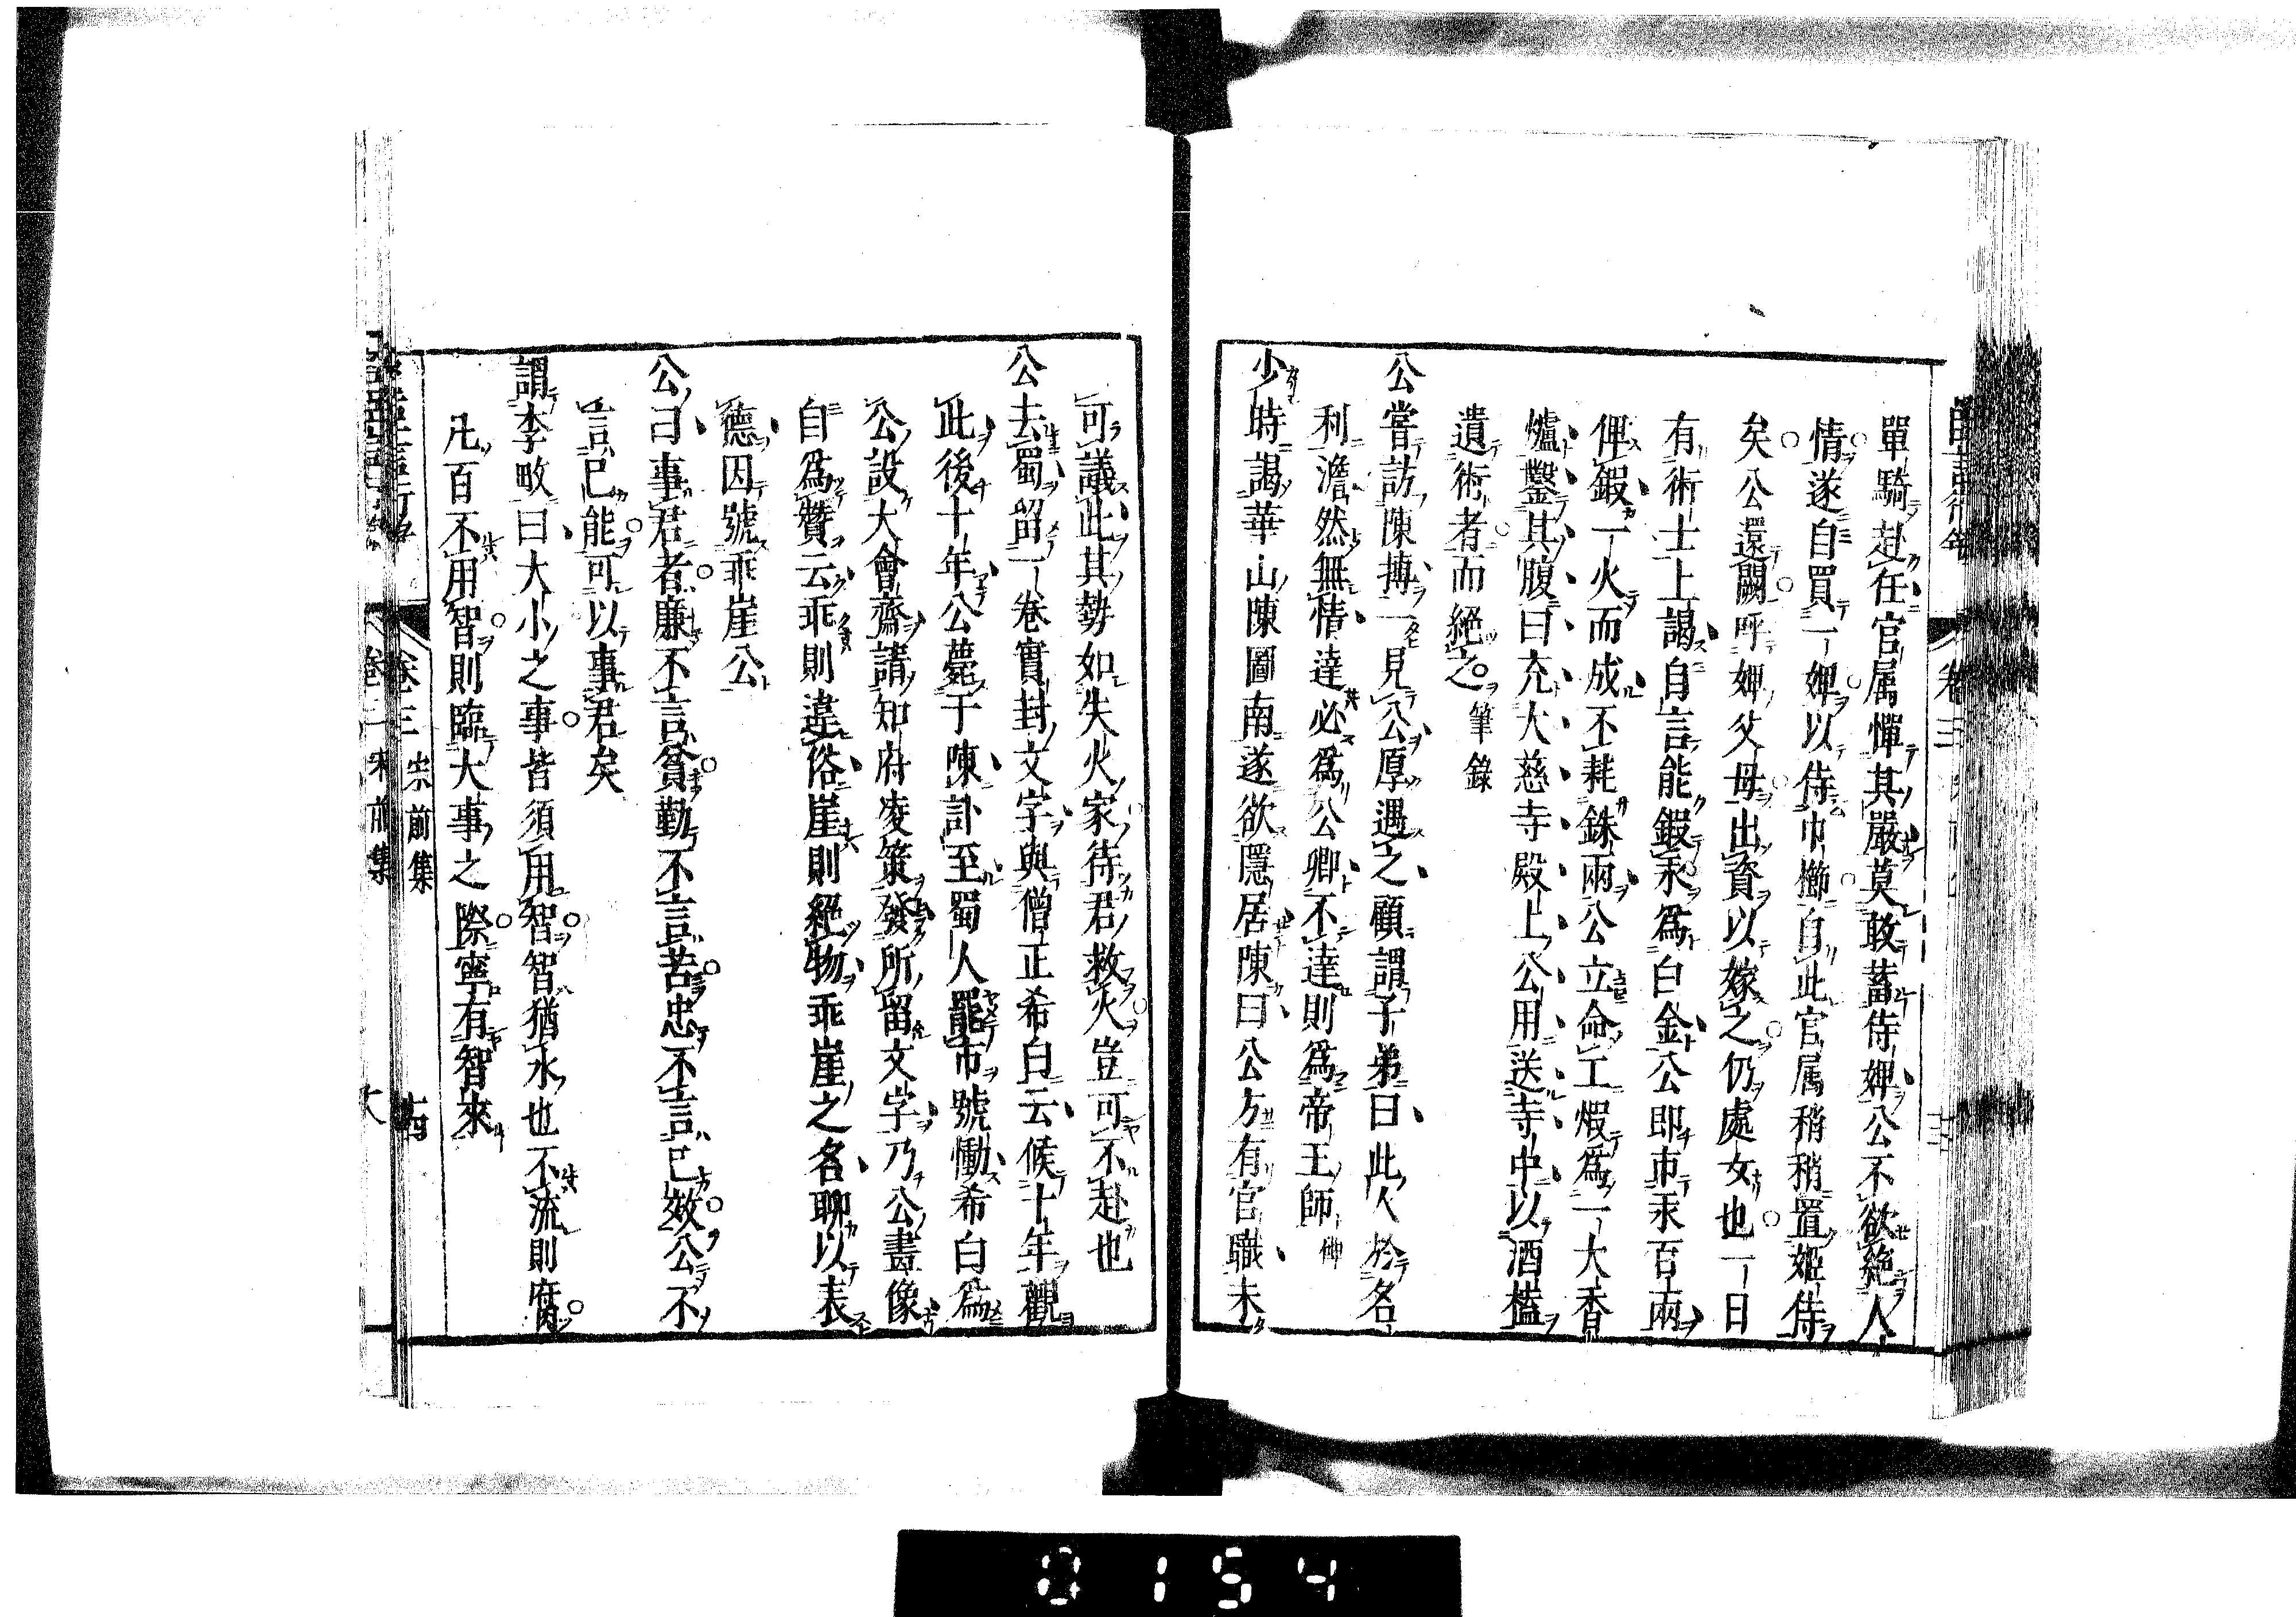 單騎赴任官属憚其嚴莫敢蓄侍婢公不欲絶人
情遂自買一婢以侍巾櫛自此官属稍稍置姬侍
矣公還闕呼婢父母出資以嫁之仍處女也一日
有術士上謁自言能鍜汞爲白金公即市汞百兩
俾鍜一火而成不耗銖兩公立命工煅爲一大香
爐鑿其腹曰充大慈寺殿上公用送寺中以酒榼
遺術者而絕之 筆錄
公嘗訪陳摶一見公厚遇之顧謂子弟曰此人於名
利澹然無情達必爲公卿不達則爲帝王師
少時謁華山陳圖南遂欲隱居陳曰公方有官職未
可議此其勢如失火家待君救火豈可不赴也
公去蜀留一卷實封文字與僧正希白云候十年觀
此後十年公薨于陳訃至蜀人罷市號慟希白爲
公設大會齋請知府凌策發所留文字乃公畫像
自爲贊云乖則違俗崖則絕物乖崖之名聊以表
德因號乖崖公
公曰事君者廉不言貧勤不言苦忠不言已效公不
言已能可以事君矣
謂李畋曰大小之事皆須用智智猶水也不流則腐
凡百不用智則臨大事之際寧有智來
卷三 宋前集
卷三
0154